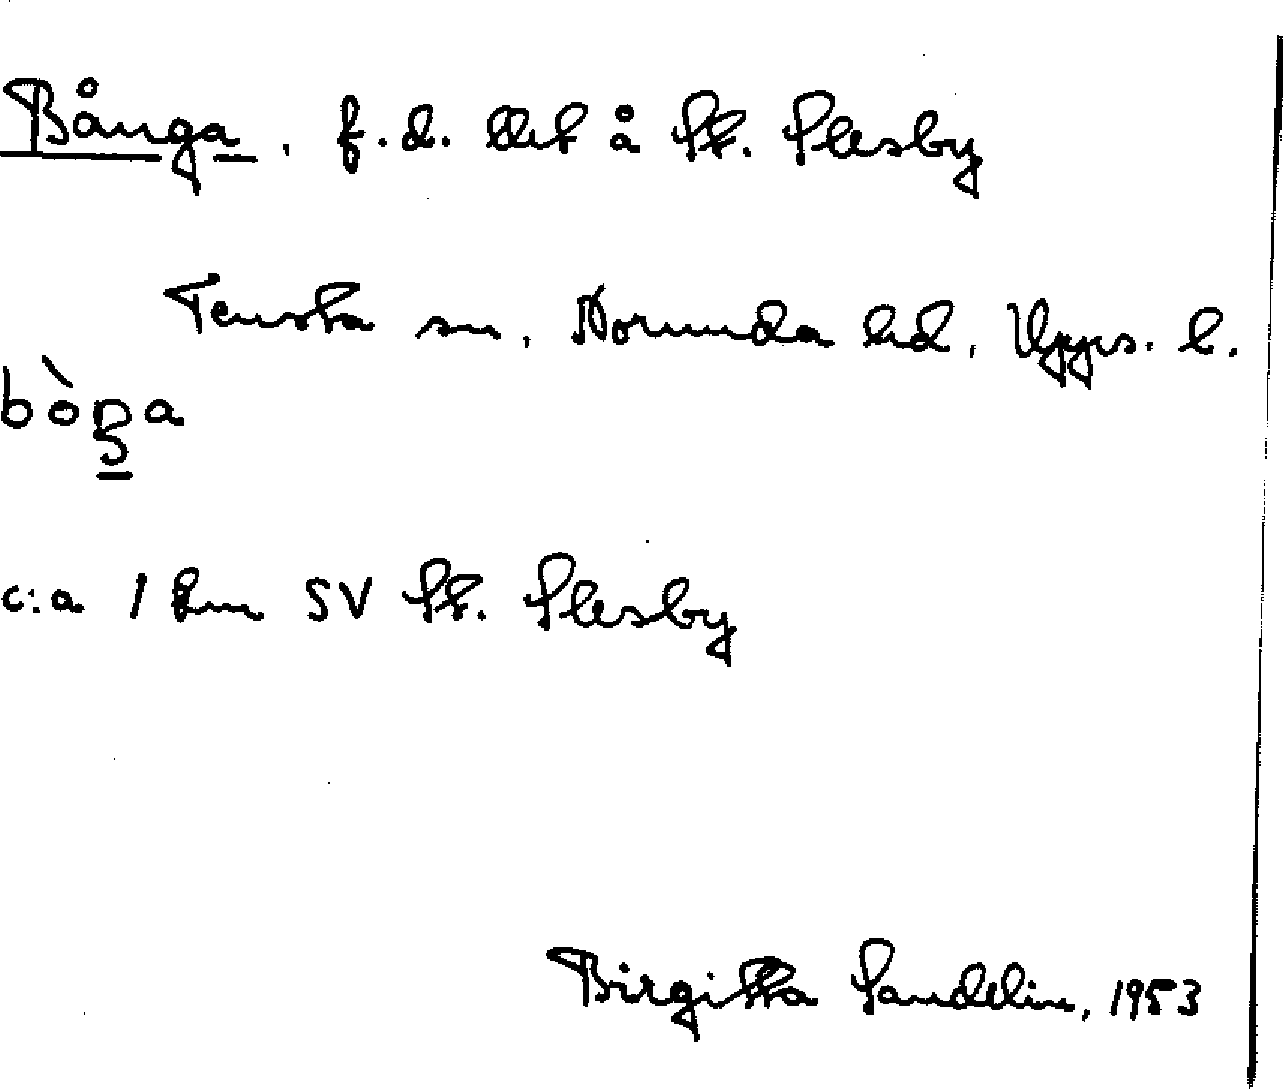 Bånga, f.d. lht å St. Plesby
Tensta sn, Norunda hd, Upps. l.
bòŋa
c:a 1 km SV St. Plesby
Birgitta Sandelin, 1953